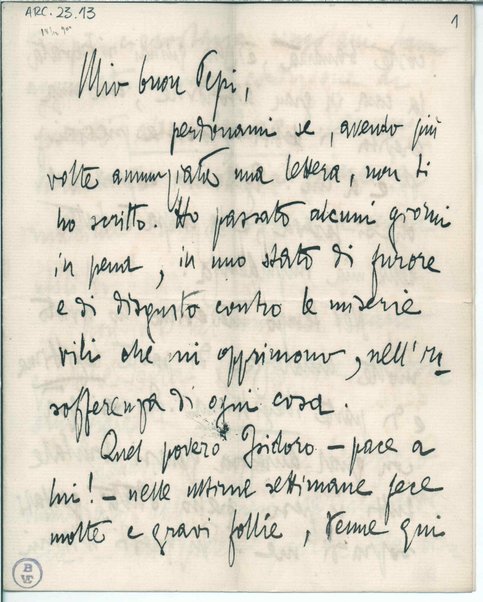 ARC. 23.13
1
Mio buon Pepi,
perdonami se, avendo più
volte annunziato una lettera, non ti
ho scritto. Ho passato alcuni giorni
in pena, in uno stato di furore
e di disgusto contro le miserie
vili che mi opprimono, nell'in
sofferenza di ogni cosa.
Quel povero Isidoro – pace a
lui! – nelle ultime settimane fece
molte e gravi follie, venne qui
B
VE